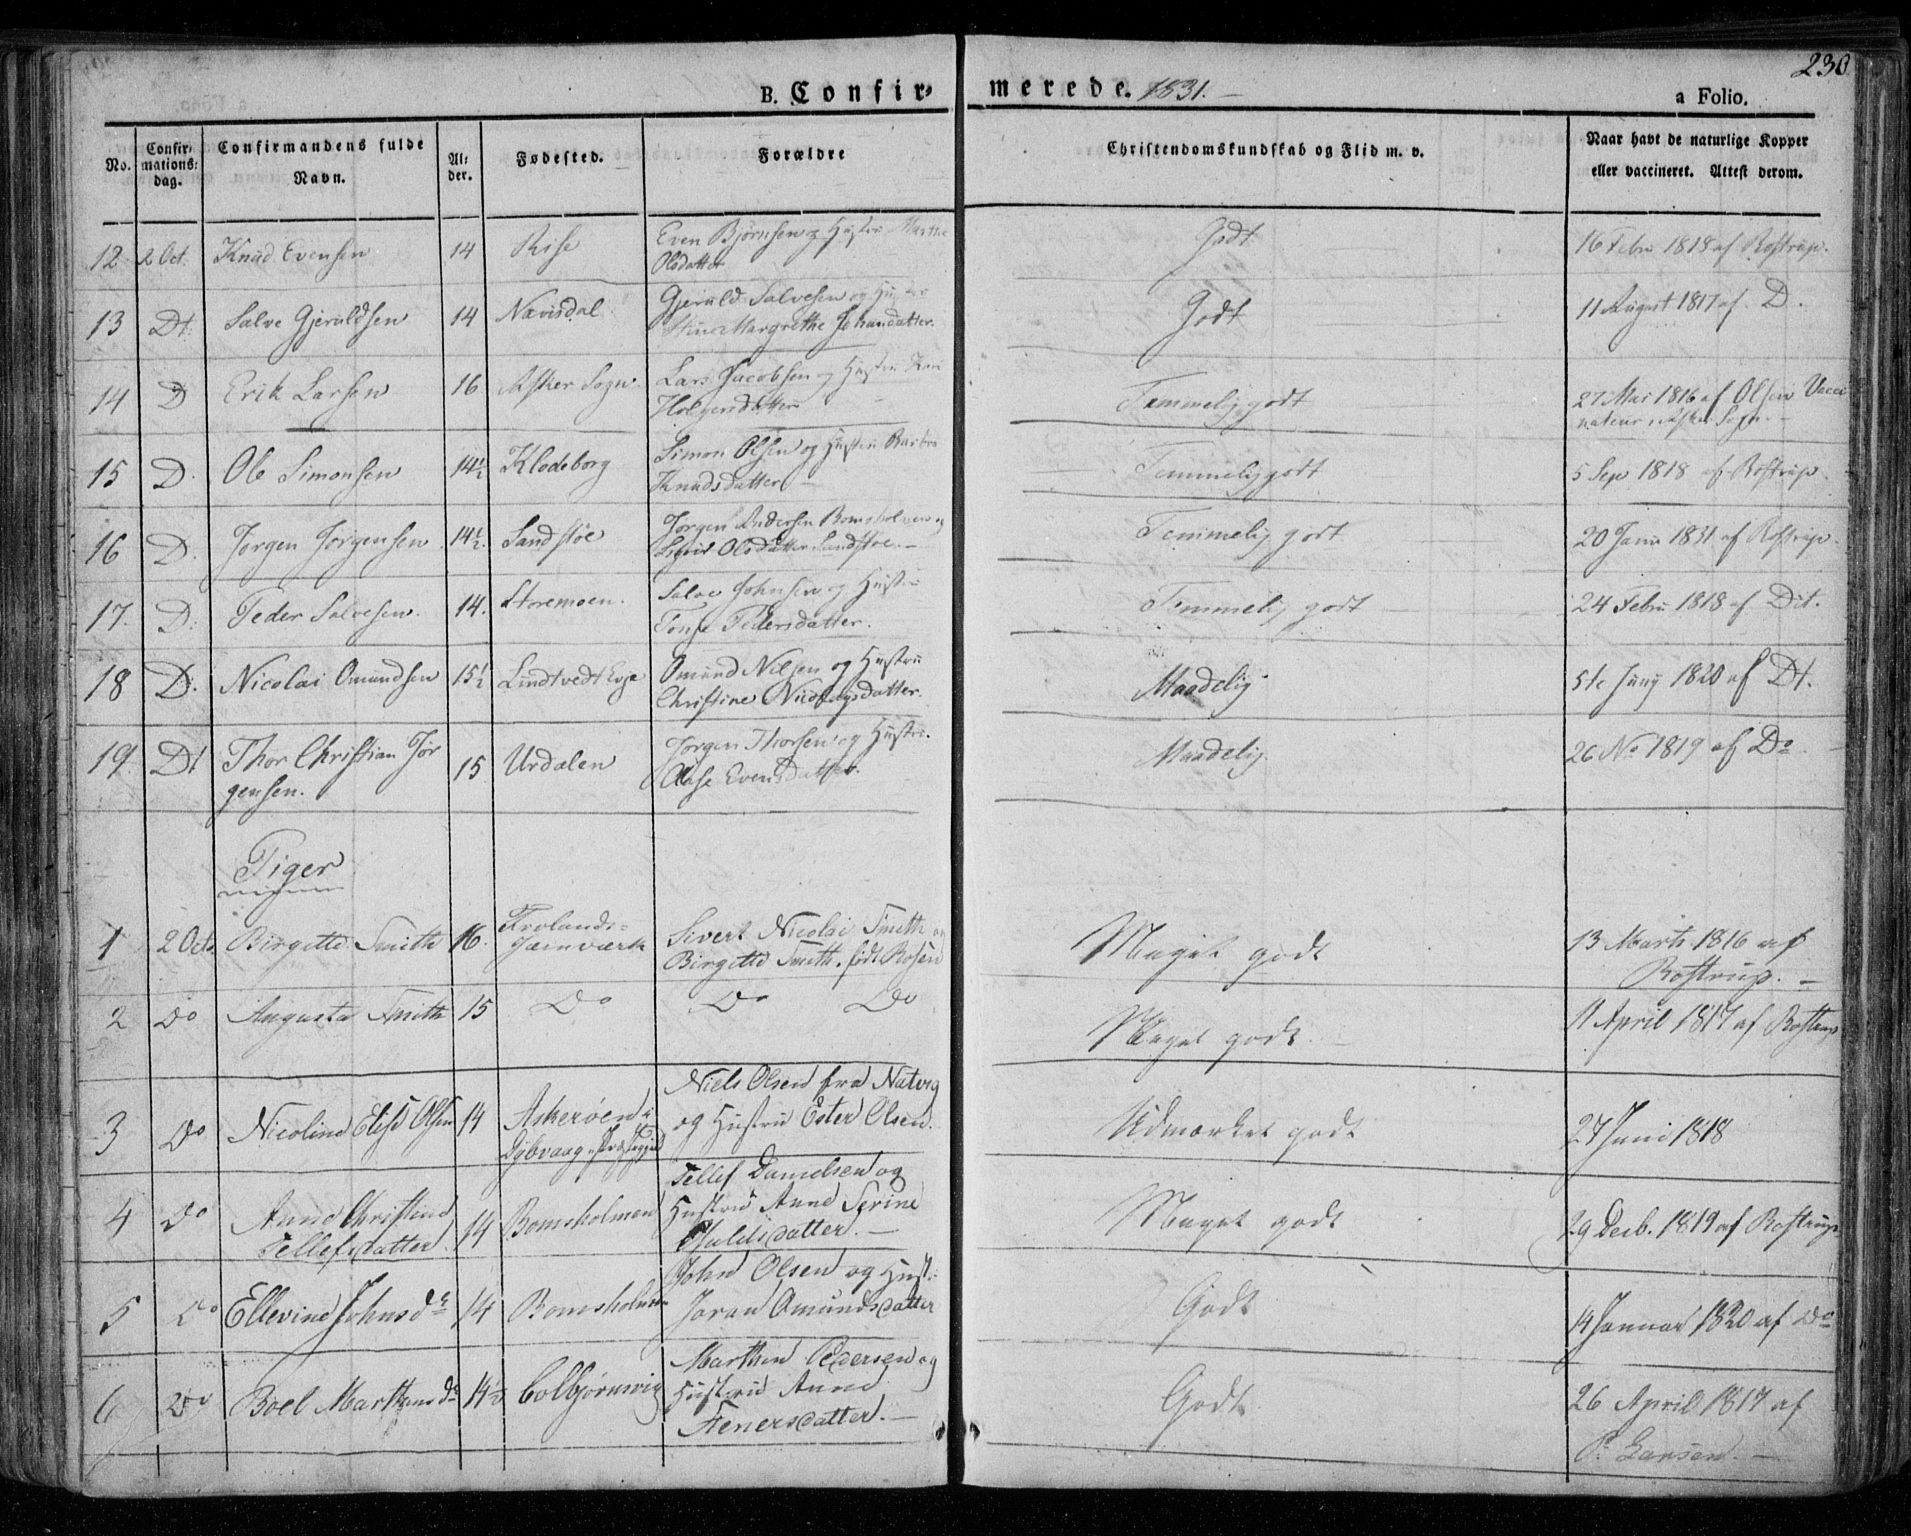 230
B. Confir= merede. 1831.
a Folio.
No.
Confir=
mations=
dag.
Confirmandens fulde
Navn.
Al=
der.
Fødested.
Forældre
Christendomskundskab og Flid m. v.
Naar havt de naturlige Kopper
eller vaccineret. Attest derom.
12 2 Oct. Knud Evensen 14 Rise Even Bjørnsen og Hustru Marthe
Olsdatter
Godt
16 Febr 1818 af Rostrup.
13 Dt. Salve Gjeruldsen 14 Nævisdal Gjeruld Salvesen og Hustru
Margrethe Johansdatter.
Godt
11 August 1817 af D.
14 D Erik Larsen 16 Asker Sogn Lars Jacobsen og Hustru
Holgersdatter
Temmelig godt
27 Mai 1816 af Olsen Vacci
nateur i Asker Sogn.
15 D. Ole Simonsen 14½ Klodeborg Simon Olsen og Hustru Barbra
Knudsdatter
Temmelig godt
5 Sep 1818 af Rostrup.
16 D. Jørgen Jørgensen 14½. Sandstøe Jørgen Andersen Bomsholmen og
Sigrid Olsdatter Sandstøe.
Temmelig godt
20 Janu 1831 af Rostrup.
17. D. Peder Salvesen. 14. Storemoen. Salve Johnsen og Hustru
Tonje Pedersdatter.
Temmelig godt
24 Febru 1818 af Dit.
18 D. Nicolai Omundsen 15½ Lindtvedt Evje Omund Nilsen og Hustru
Christine Nicolaysdatter.
Maadelig
5te Juny 1820 af Dt.
19. Dt Thor Christian Jør
gensen.
15 Urdalen Jørgen Thorsen og Hustru.
Olase Evensdatter.
Maadelig.
26 No 1819 af Do
Piger
1 2 Octo. Birgitte Smith 16. Frolands=
Jernværk
Sivert Nicolai Smith og
Birgitte Smith. født Rosen
Meget godt
13 Marts 1816 af
Rostrup.
2 Do Augusta Smith 15 Do Do Do
Meget godt.
11 April 1817 af Rostrup
3 Do Nicoline Elise Olsen 14 Askerøen
Dybvaag Præstegjeld
Niels Olsen fra Natvig
og Hustru Ester Olsen.
Udmærket godt
27 Juni 1818
4 Do Anne Christine
Tellefsdatter
14 Bomsholmen Tellef Danielsen og
Hustru Anne Serine
datter.
Meget godt
29 Decb. 1819 af Rostrup
5 Do Ellevine Johns dr 14 Bomsholmen John Olsen og Hust.
Joran Omundsdatter
Godt
14 Januar 1820 af Do
6 Do Boel Marthens dr 14½ Colbjørnsvig Marthen Pedersen og
Hustru Anne
Stenersdatter.
Godt
26 April 1817 af
P. Larsen.